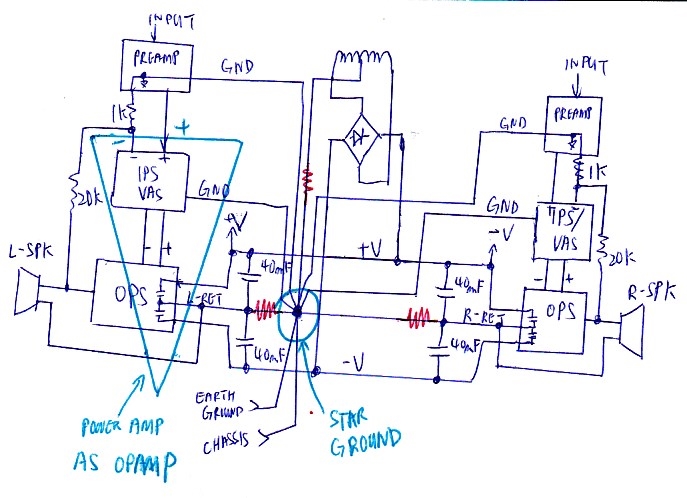 INPUT
PREAMP
GND
1K
- +
- +
IPS
VAS
20K
GND
+V
- +
L-SPK
OPS
L-RET
40mF
40mF
EARTH
GROUND
CHASSIS
POWER AMP
AS OPAMP
STAR
GROUND
+V
-V
INPUT
PREAMP
GND
1K
GND
- +
IPS/
VAS
-V
20K
- +
40mF
40mF
R-RET
OPS
R-SPK